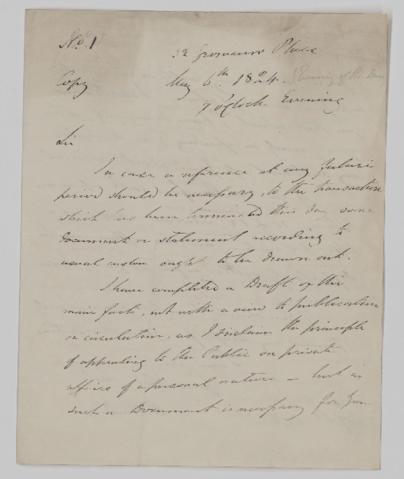 No. 1
32 Grosvenor Place
Copy
May 6th 1824
9 o'Clock Evening
Sir
In case a reference at any future
period should be necessary, to the transaction
which has been terminated this day some
document or statement according to
usual custom ought to be drawn out.
I have completed a Draft of the
main facts, not with a view to publication
or circulation, as I disclaim the principle
of appealing to the Public on private
affairs of a personal nature - but as
such a Document is necessary for your